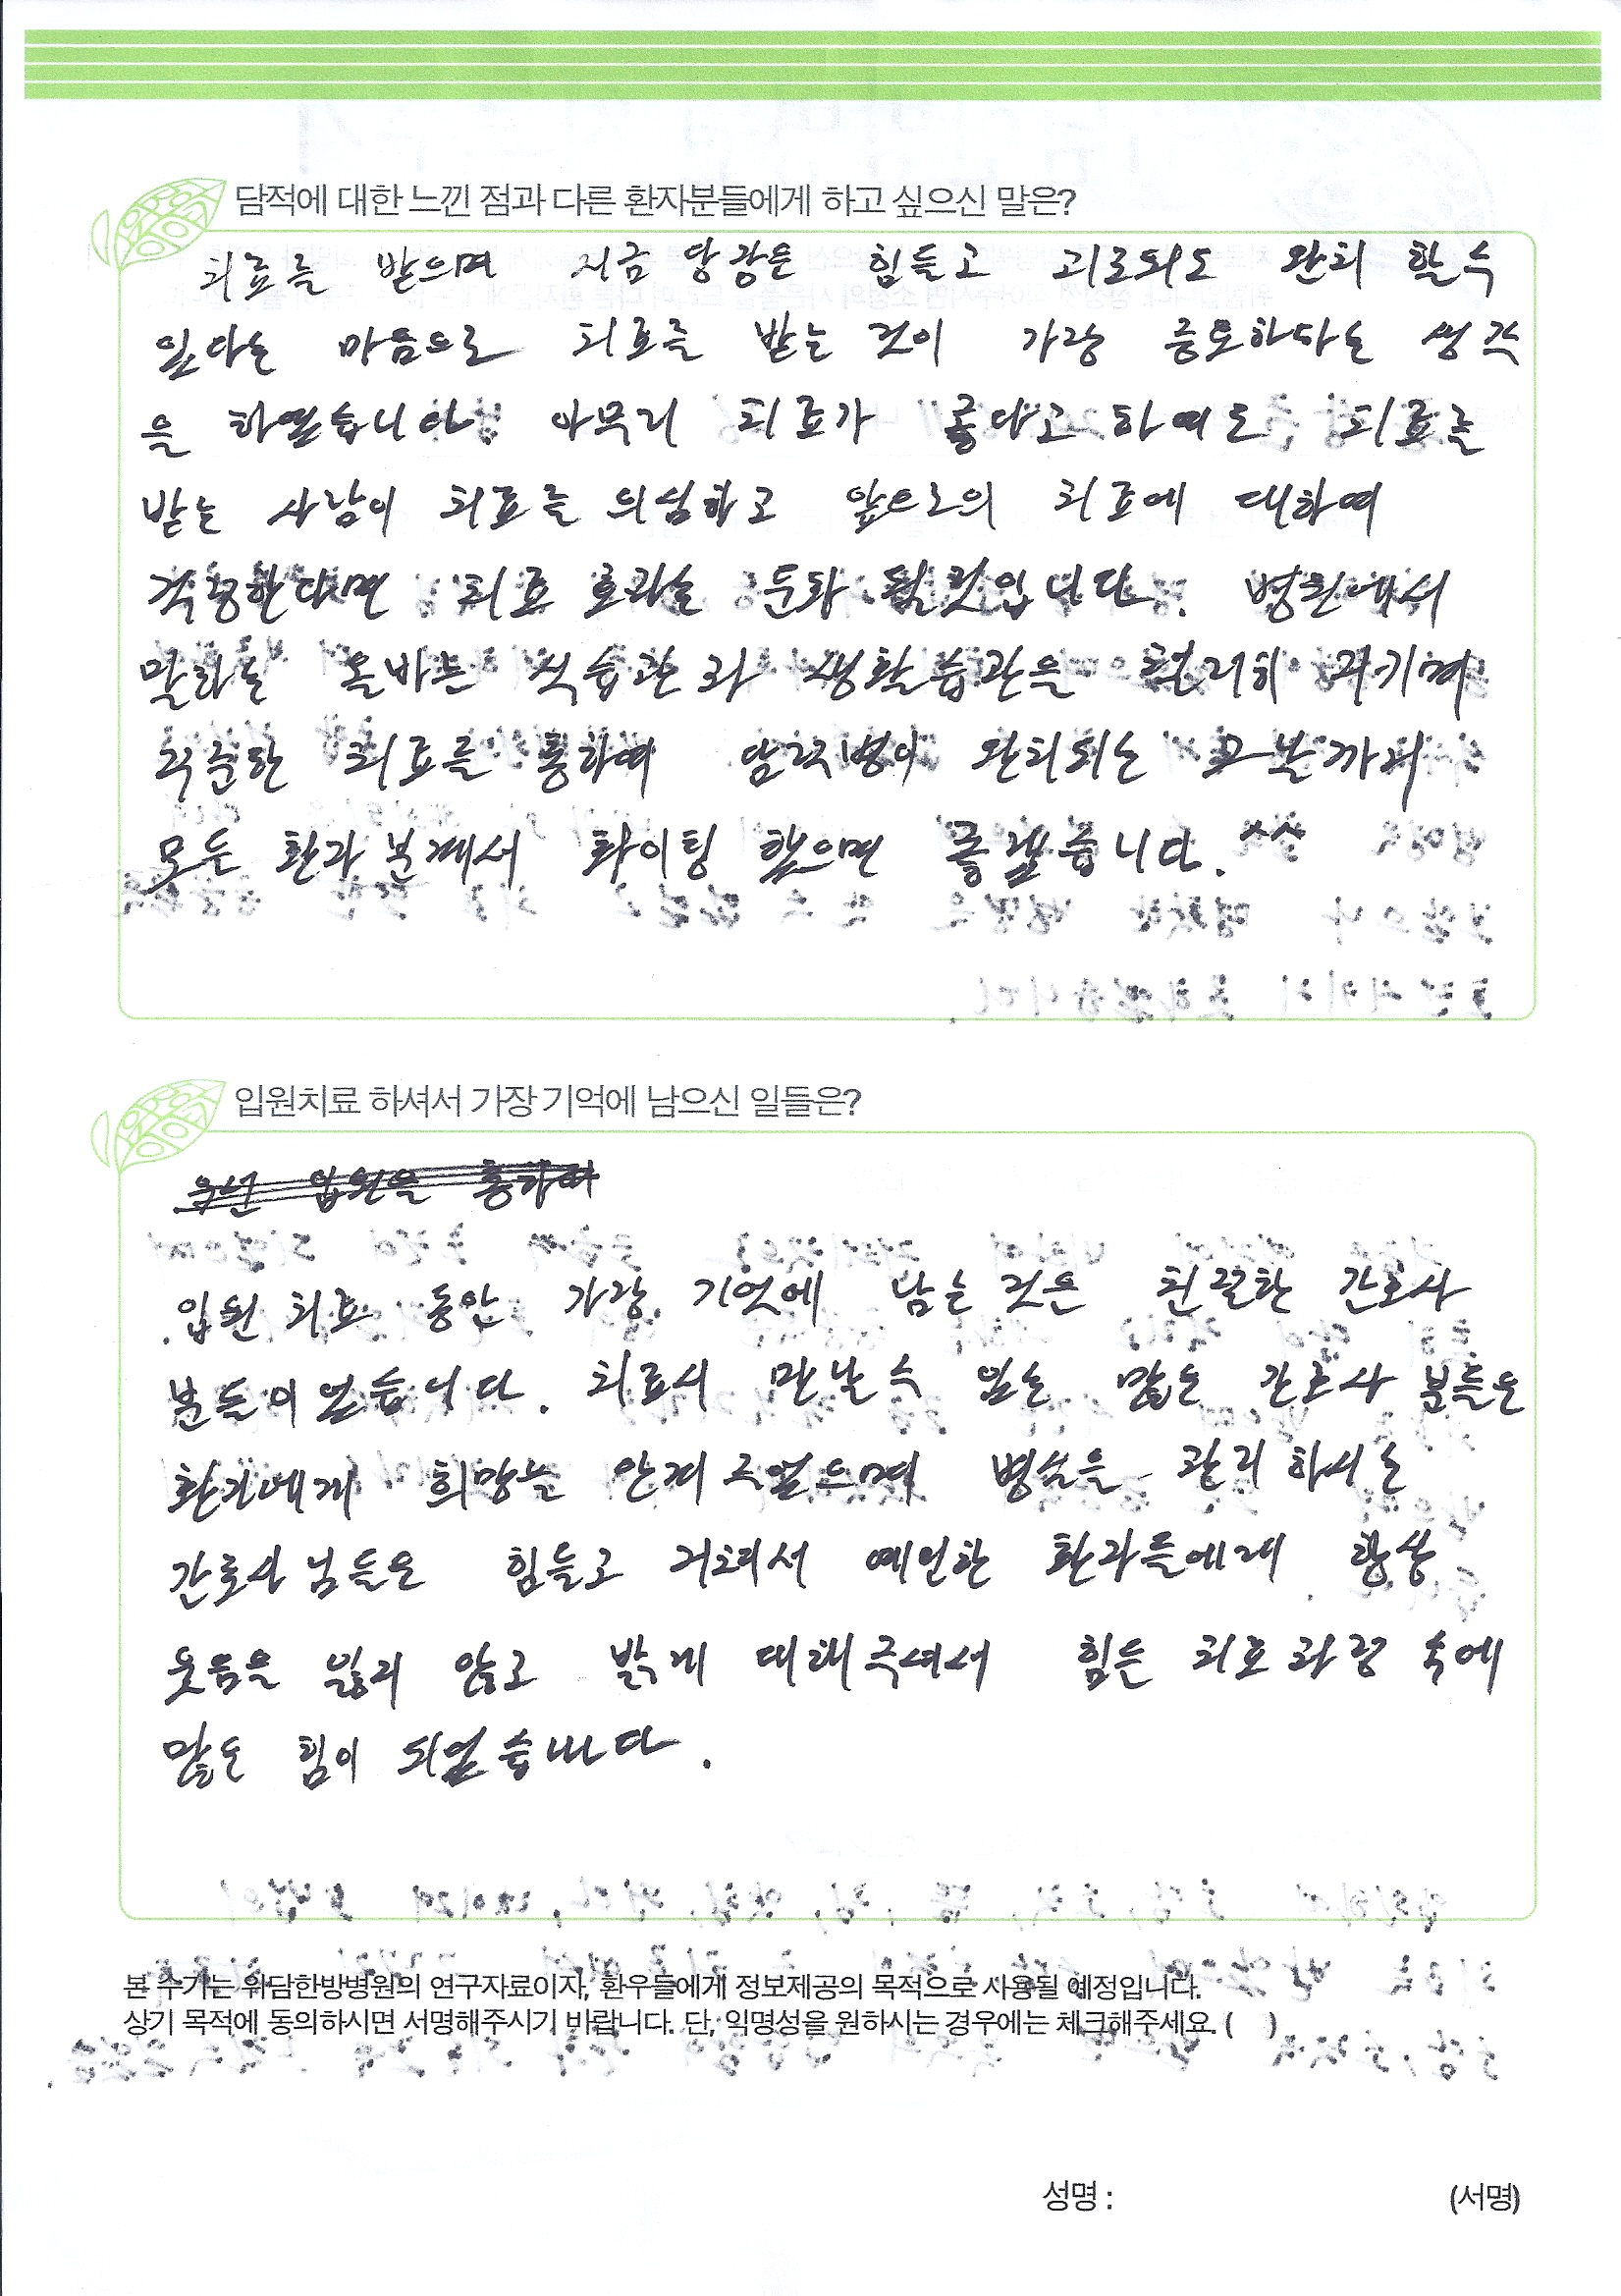 담적에 대한 느낀 점과 다른 환자분들에게 하고 싶으신 말은?
치료를 받으며 지금 당장은 힘들고 괴로워도 완치 할수
있다는 마음으로 치료를 받는 것이 가장 중요하다는 생각
을 하였습니다. 아무리 치료가 좋다고 하여도 치료를
받는 사람이 치료를 의심하고 앞으로의 치료에 대하여
걱정한다면 치료 효과는 둔화 될것입니다. 병원에서
말하는 올바른 식습관과 생활습관을 철저히 지키며
꾸준한 치료를 통하여 담적병이 완치되는 그날까지
모든 환자분께서 화이팅 했으면 좋겠습니다. ^^
입원치료 하셔서 가장 기억에 남으신 일들은?
우선 입원을 통하여
입원 치료 동안 가장 기억에 남는 것은 친절한 간호사
분들이었습니다. 치료시 만날수 있는 많은 간호사 분들은
환자에게 희망을 안겨 주었으며 병실을 관리하시는
간호사님들은 힘들고 지쳐서 예민한 환자들에게 항상
웃음을 잃지 않고 밝게 대해주셔서 힘든 치료과정 속에
많은 힘이 되었습니다.
본 수기는 위담한방병원의 연구자료이자, 환우들에게 정보제공의 목적으로 사용될 예정입니다.
상기 목적에 동의하시면 서명해주시기 바랍니다. 단, 익명성을 원하시는 경우에는 체크해주세요. (  )
성명 : (서명)